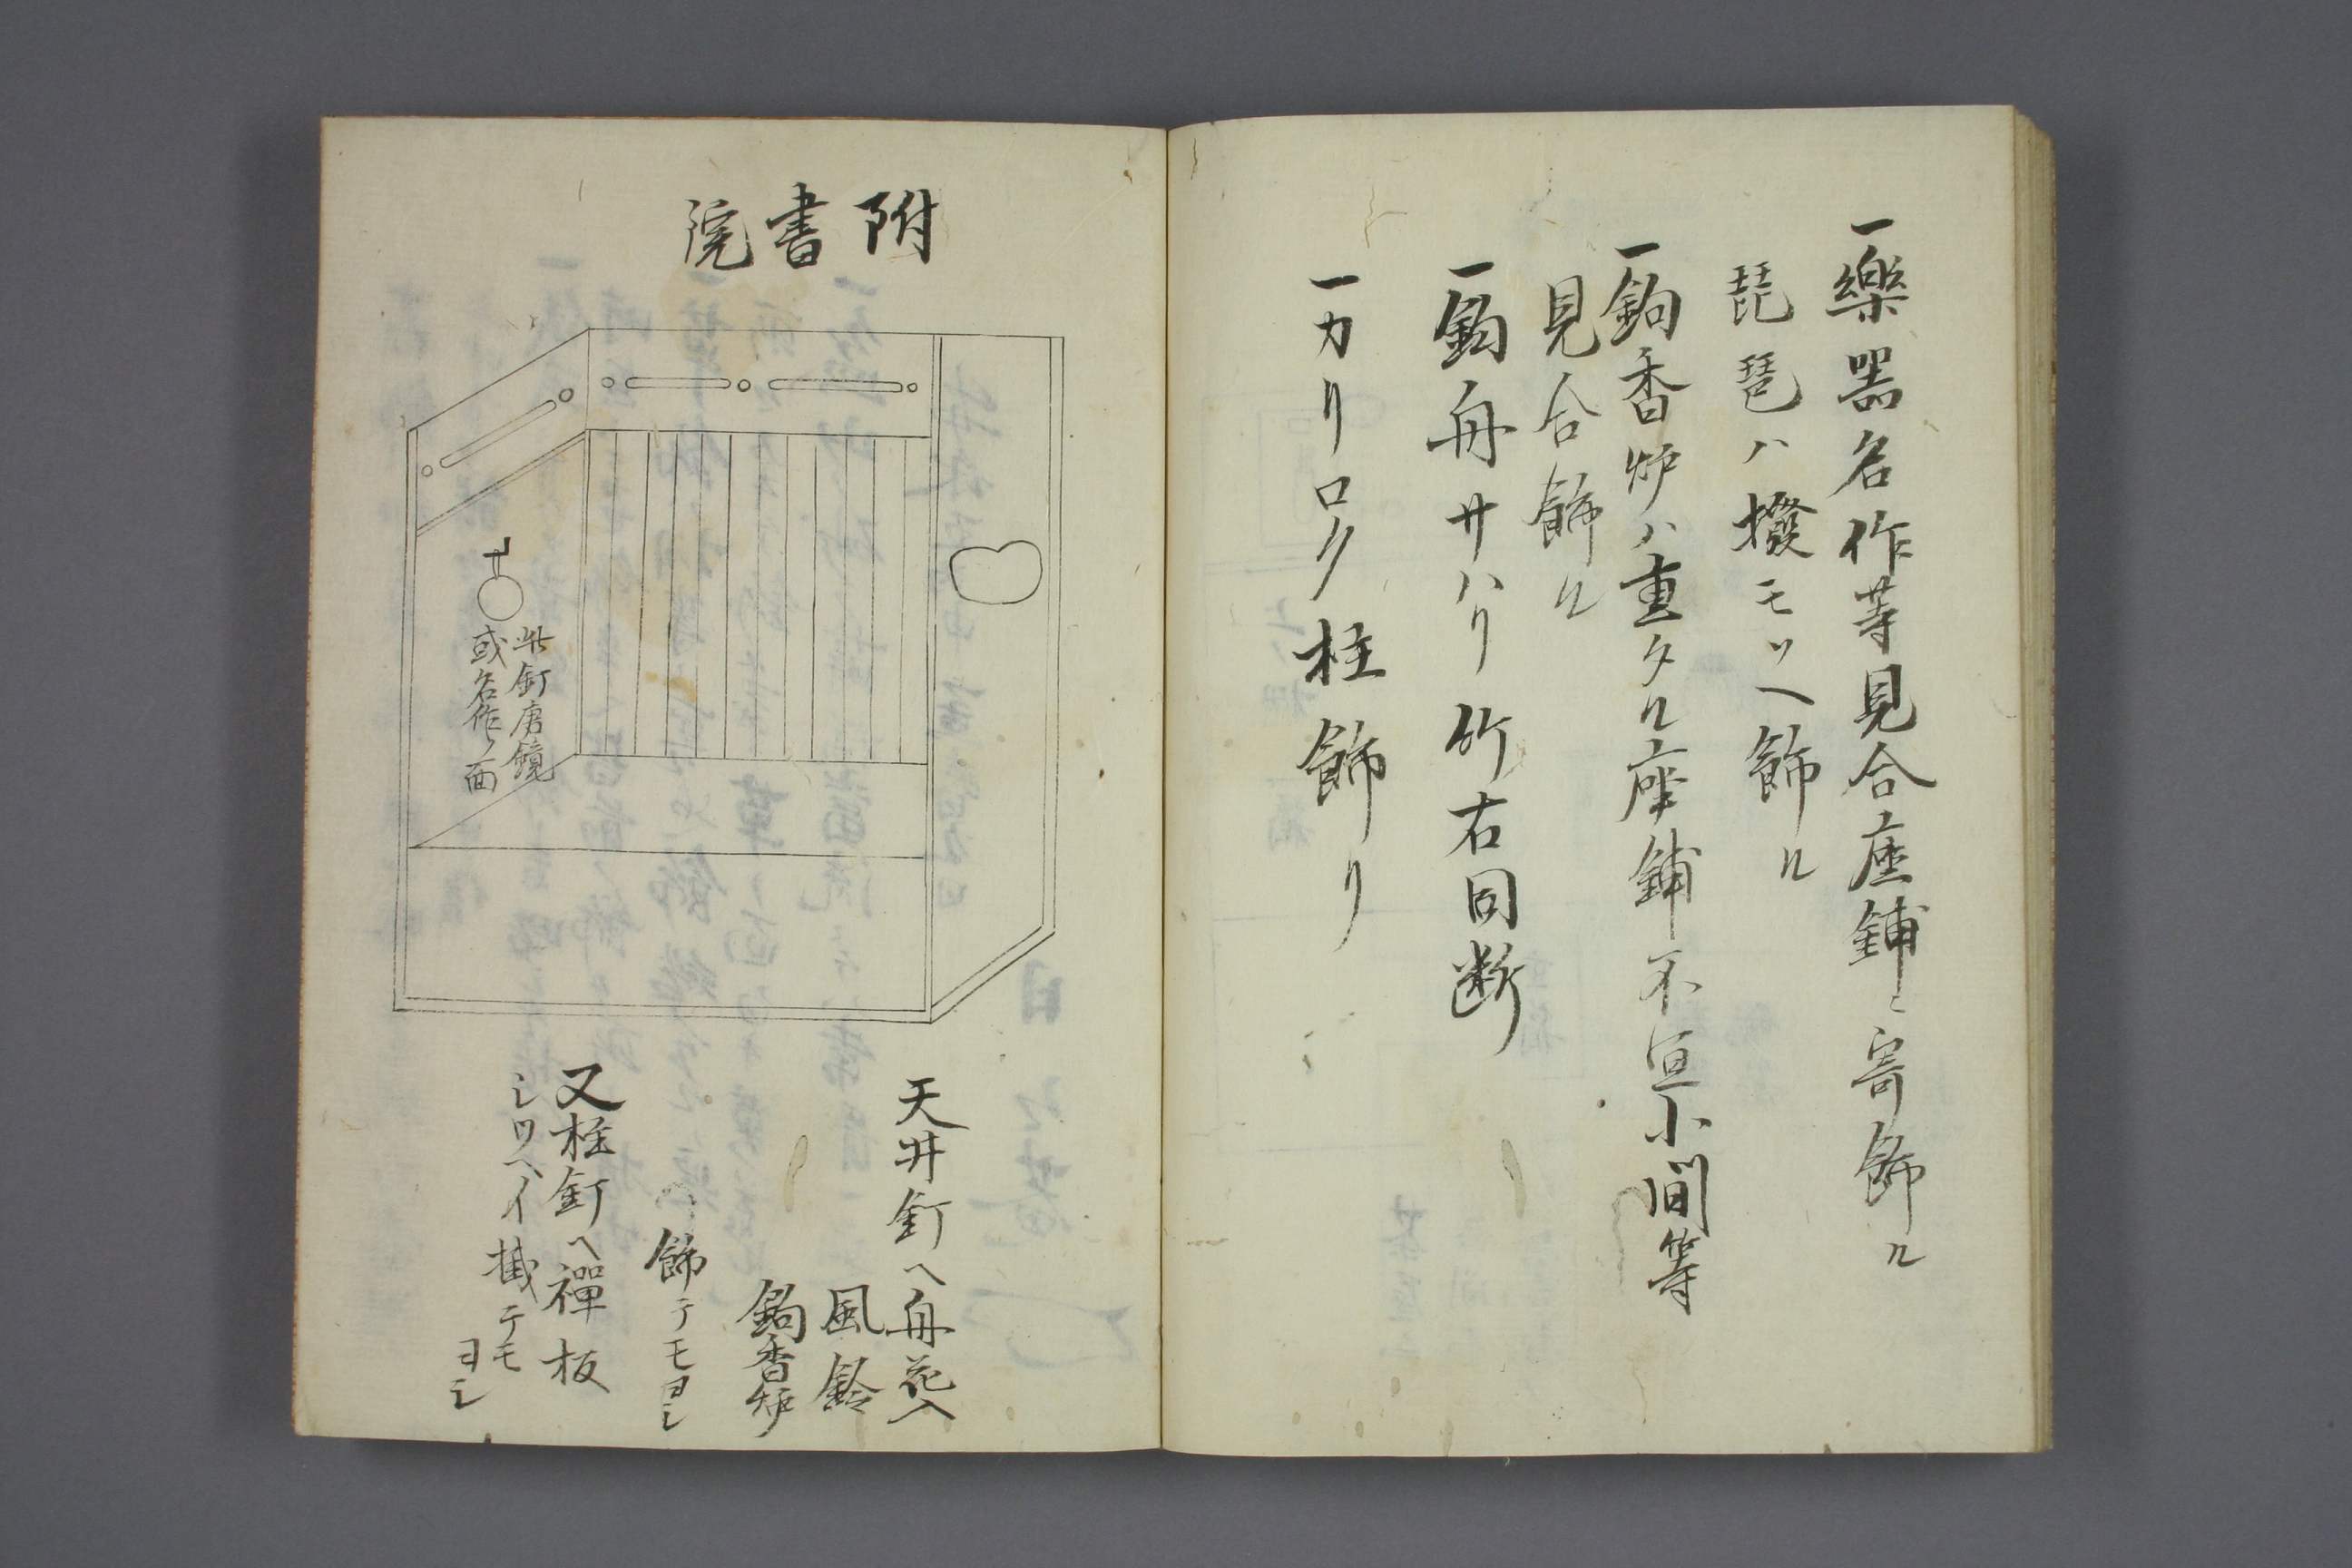 一樂器名作等見合座鋪ニ寄飾ル
琵琶ハ撥モソヘ飾ル
一鈎香炉ハ重タル座鋪不宜小間等
見合飾ル
一鈎舟サハリ竹右同断
一カリロク柱飾リ
附書院
此釘唐鏡
或名作ノ面
天井釘ヘ舟花入
風鈴
鈎香炉
飾テモヨシ
又柱釘ヘ禪板
シツヘイ掛テモ
ヨシ